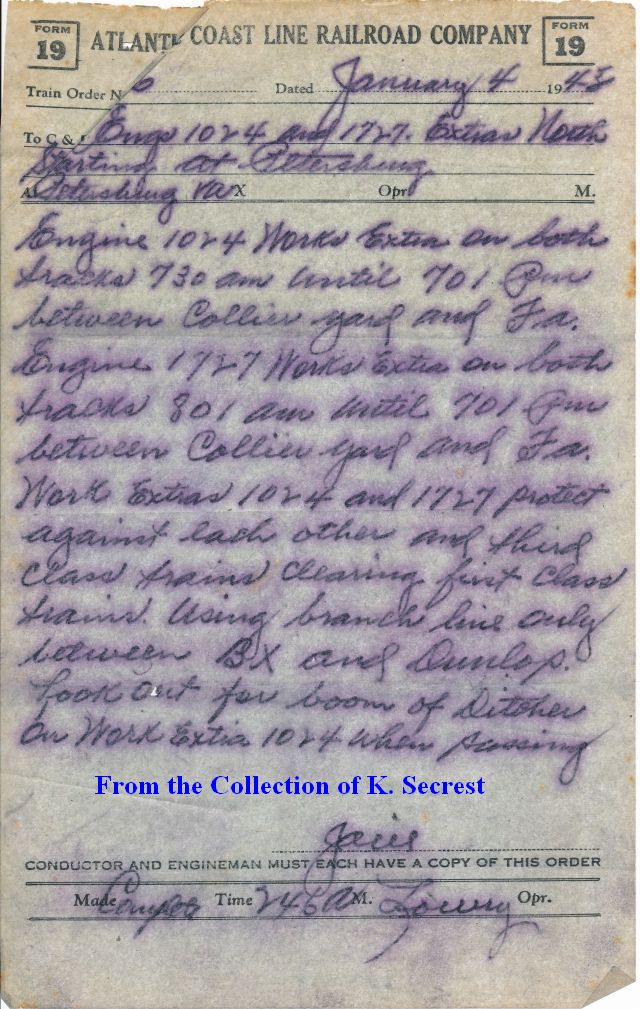 FORM 19 ATLANTI COAST LINE RAILROAD COMPANY FORM 19
Train Order N 6 Dated January 4 194
To C & Engs 1024 and 1727. Extras North
Starting at Petersburg
Petersburg Va X Opr. M.
Engine 1024 Works Extra on both
tracks 730 am until 701 Pm
between Collier yard and Fa.
Engine 1727 Works Extra on both
tracks 801 am until 701 Pm
between Collier yard and Fa.
Work Extras 1024 and 1727 protect
against each other and third
class trains clearing first class
trains. Using branch line only
between BX and Dunlop.
Look out for boom of Ditcher
on Work Extra 1024 when passing
From the Collection of K. Secrest
CONDUCTOR AND ENGINEMAN MUST EACH HAVE A COPY OF THIS ORDER
Made Time 246 A M. Lowry Opr.